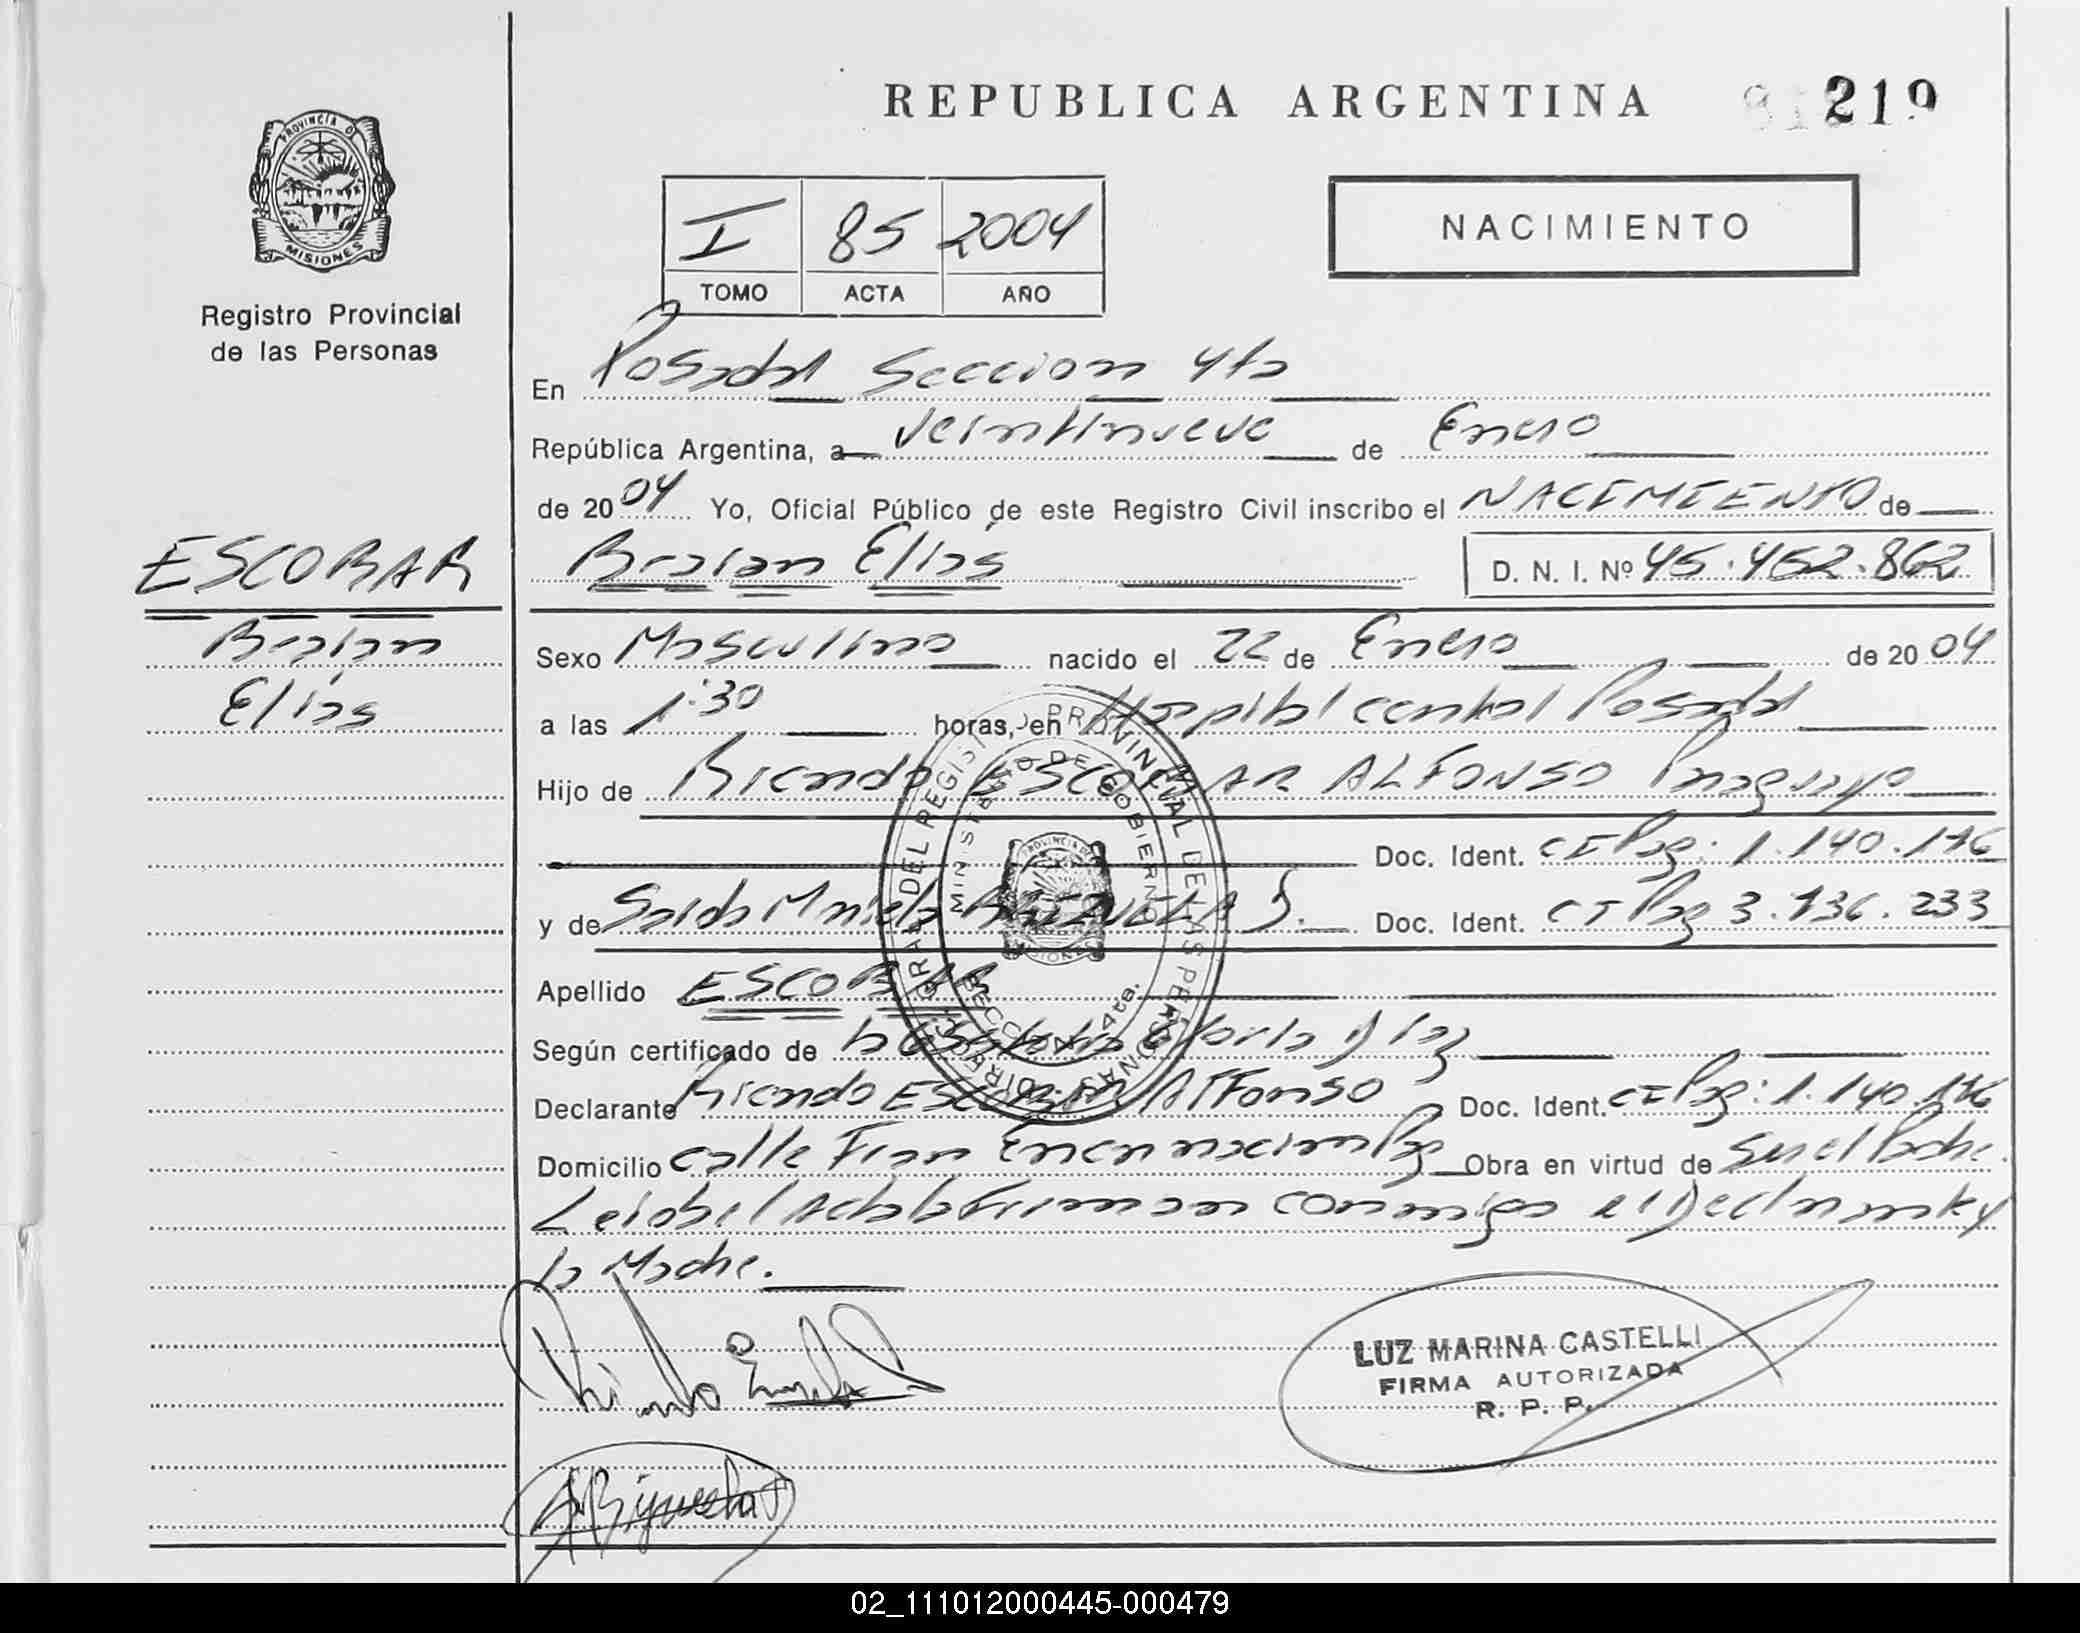 REPUBLICA ARGENTINA 219
PROVINCIA DE MISIONES
Registro Provincial
de las Personas
I 85 2004
TOMO ACTA AÑO
NACIMIENTO
En Posadas Seccion 4ta
República Argentina, a veintinueve de Enero
de 2004 Yo, Oficial Público de este Registro Civil inscribo el NACIMIENTO de
Braian Elias D. N. I. Nº 45.452.862
ESCOBAR
Braian
Elias
Sexo Masculino nacido el 22 de Enero de 2004
a las 1:30 horas, en Hospital central Posadas
Hijo de Ricardo ESCOBAR ALFONSO Paraguayo
Doc. Ident. CI Pag: 1.140.176
y de Mariela Doc. Ident. CI Pag 3.736.233
Apellido ESCOBAR
Según certificado de la Obstetra Gloria Diaz
Declarante Ricardo ESCOBAR Alfonso Doc. Ident. CI Pag: 1.140.176
Domicilio calle Fran Encarnacion Pag Obra en virtud de Ser el Padre.
Leida el Acta la firman conmigo el Declarante y
la Madre.
DIRECC. GRAL. DEL REGISTRO PROVINCIAL DE LAS PERSONAS
MINISTERIO DE GOBIERNO
SECCION 4ta.
LUZ MARINA CASTELLI
FIRMA AUTORIZADA
R. P. P.
02_111012000445-000479